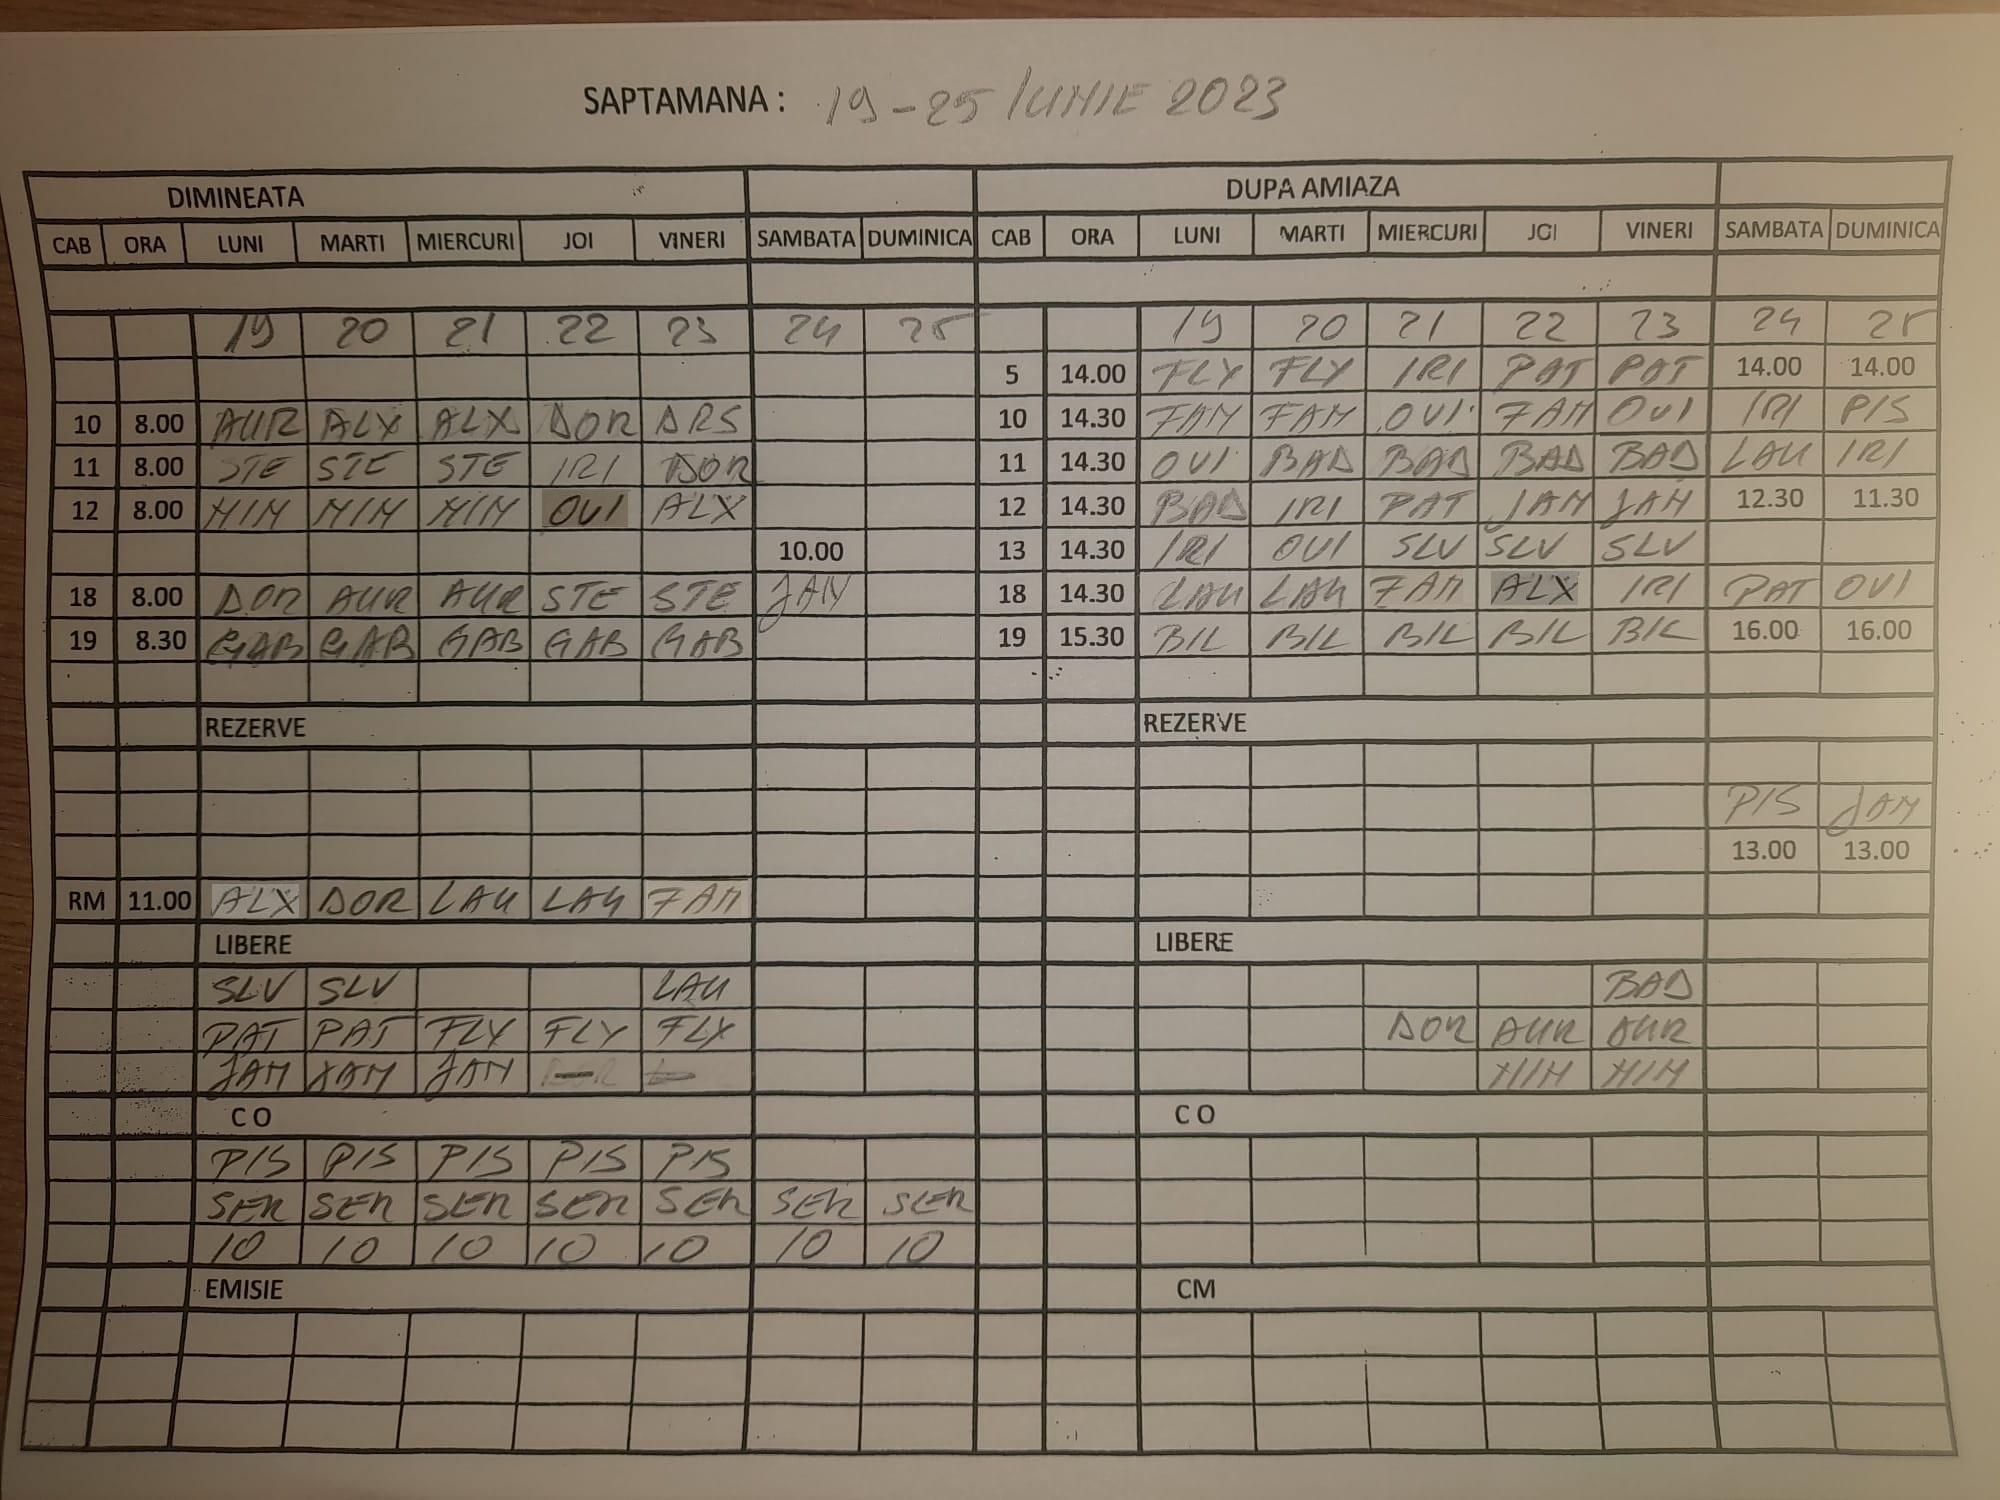 SAPTAMANA : 19-25 IUNIE 2023
DIMINEATA DUPA AMIAZA
CAB ORA LUNI MARTI MIERCURI JOI VINERI SAMBATA DUMINICA CAB ORA LUNI MARTI MIERCURI JOI VINERI SAMBATA DUMINICA
19 20 21 22 23 24 25 19 20 21 22 23 24 25
5 14.00 FLY FLY IRI PAT PAT 14.00 14.00
10 8.00 AUR ALX ALX DOR DRS 10 14.30 FAM FAM OVI FAM OVI IRI PIS
11 8.00 STE STE STE IRI DOR 11 14.30 OVI BAD BAD BAD BAD LAU IRI
12 8.00 MIM MIM MIM OVI ALX 12 14.30 BAD IRI PAT JAM JAM 12.30 11.30
10.00 13 14.30 IRI OVI SLV SLV SLV
18 8.00 DOR AUR AUR STE STE JAM 18 14.30 LAU LAU FAM ALX IRI PAT OVI
19 8.30 GAB GAB GAB GAB GAB 19 15.30 BIL BIL BIL BIL BIL 16.00 16.00
REZERVE REZERVE
PIS JAM
13.00 13.00
RM 11.00 ALX DOR LAU LAU FAM
LIBERE LIBERE
SLV SLV LAU BAD
PAT PAT FLY FLY FLY DOR AUR AUR
JAM JAM JAM MIM MIM
C O C O
PIS PIS PIS PIS PIS
SER SER SER SER SER SER SER
10 10 10 10 10 10 10
EMISIE CM